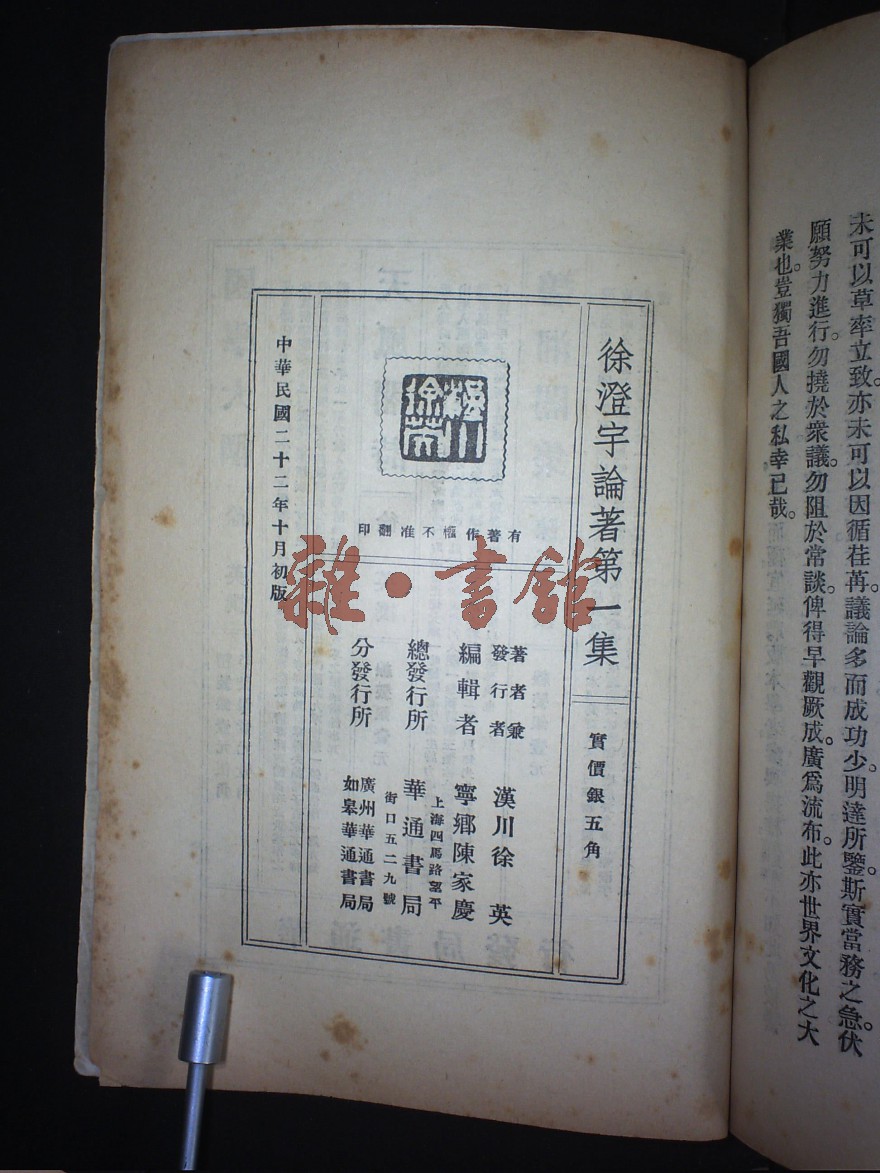 未可以草率立致。亦未可以因循荏苒。議論多而成功少。明達所鑒。斯實當務之急。伏
願努力進行。勿撓於衆議。勿阻於常談。俾得早觀厥成。廣爲流布。此亦世界文化之大
業也。豈獨吾國人之私幸已哉。
徐澄宇論著第一集
實價銀五角
漢川徐英
有著作權不准翻印
著者兼
發行者
漢川徐英
編輯者
寧鄉陳家慶
總發行所
上海四馬路望平
街口五二九號
華通書局
分發行所
廣州華通書局
如皋華通書局
中華民國二十二年十月初版
雜·書館